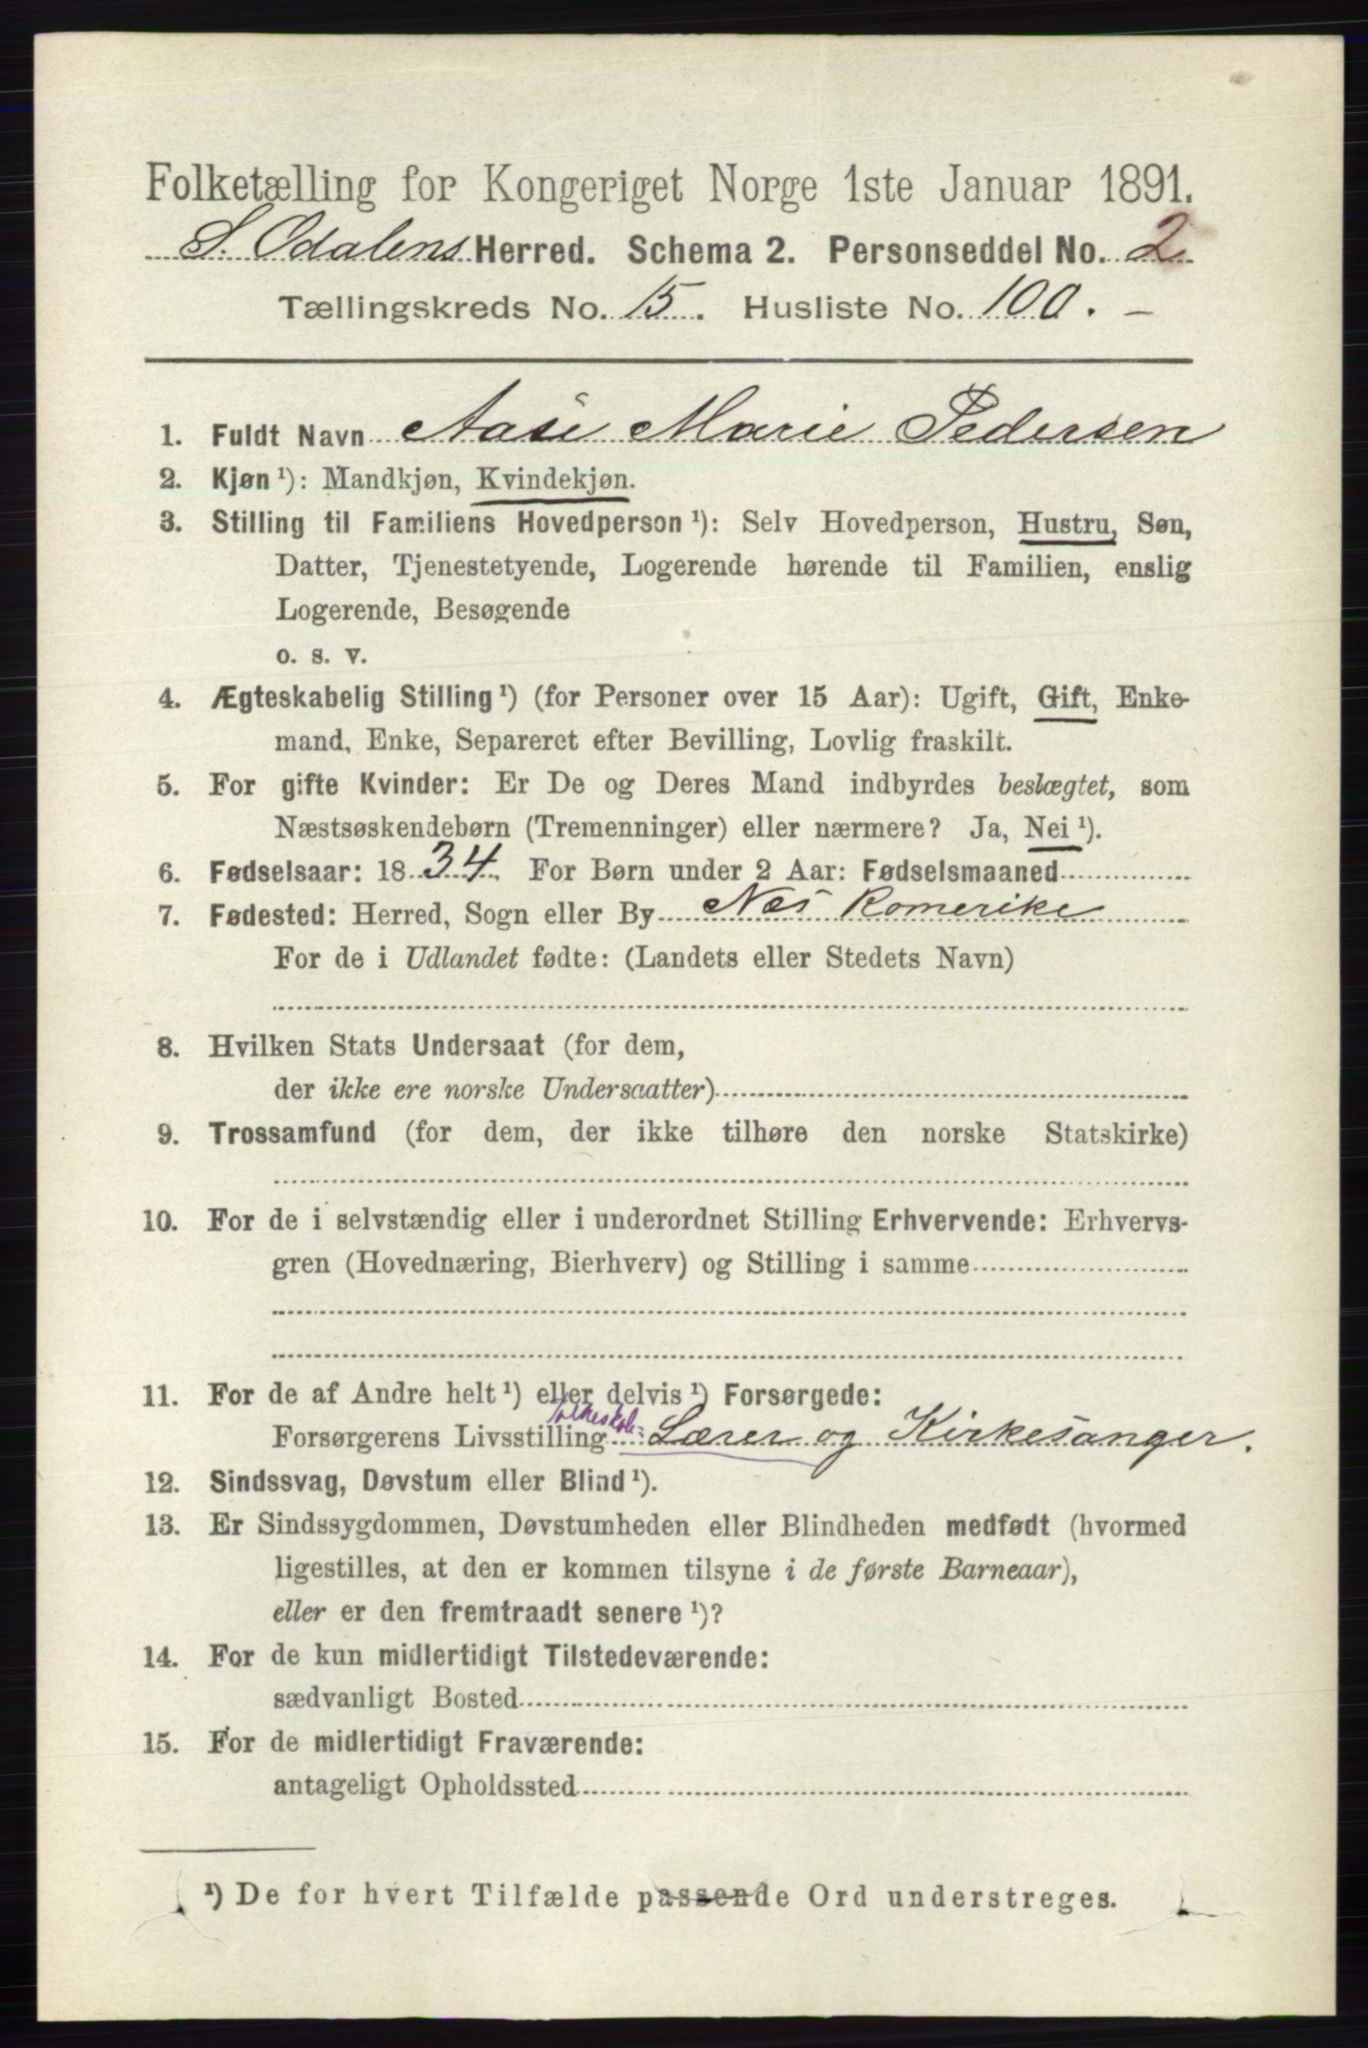 Folketælling for Kongeriget Norge 1ste Januar 1891.
S. Odalens Herred. Schema 2. Personseddel No. 2.
Tællingskreds No. 15. Husliste No. 100. –
1. Fuldt Navn Aase Marie Pedersen
2. Kjøn ¹): Mandkjøn, Kvindekjøn.
3. Stilling til Familiens Hovedperson ¹): Selv Hovedperson, Hustru, Søn,
Datter, Tjenestetyende, Logerende hørende til Familien, enslig
Logerende, Besøgende
o. s. v.
4. Ægteskabelig Stilling ¹) (for Personer over 15 Aar): Ugift, Gift, Enke-
mand, Enke, Separeret efter Bevilling, Lovlig fraskilt.
5. For gifte Kvinder: Er De og Deres Mand indbyrdes beslægtet, som
Næstsøskendebørn (Tremenninger) eller nærmere? Ja, Nei ¹).
6. Fødselsaar: 18 34. For Børn under 2 Aar: Fødselsmaaned
7. Fødested: Herred, Sogn eller By Nes Romerike
For de i Udlandet fødte: (Landets eller Stedets Navn)
8. Hvilken Stats Undersaat (for dem,
der ikke ere norske Undersaatter)
9. Trossamfund (for dem, der ikke tilhøre den norske Statskirke)
10. For de i selvstændig eller i underordnet Stilling Erhvervende: Erhvervs-
gren (Hovednæring, Bierhverv) og Stilling i samme
11. For de af Andre helt ¹) eller delvis ¹) Forsørgede:
Folkeskole-
Forsørgerens Livsstilling Lærer og Kirkesanger.
12. Sindssvag, Døvstum eller Blind ¹).
13. Er Sindssygdommen, Døvstumheden eller Blindheden medfødt (hvormed
ligestilles, at den er kommen tilsyne i de første Barneaar),
eller er den fremtraadt senere ¹)?
14. For de kun midlertidigt Tilstedeværende:
sædvanligt Bosted
15. For de midlertidigt Fraværende:
antageligt Opholdssted
¹) De for hvert Tilfælde passende Ord understreges.